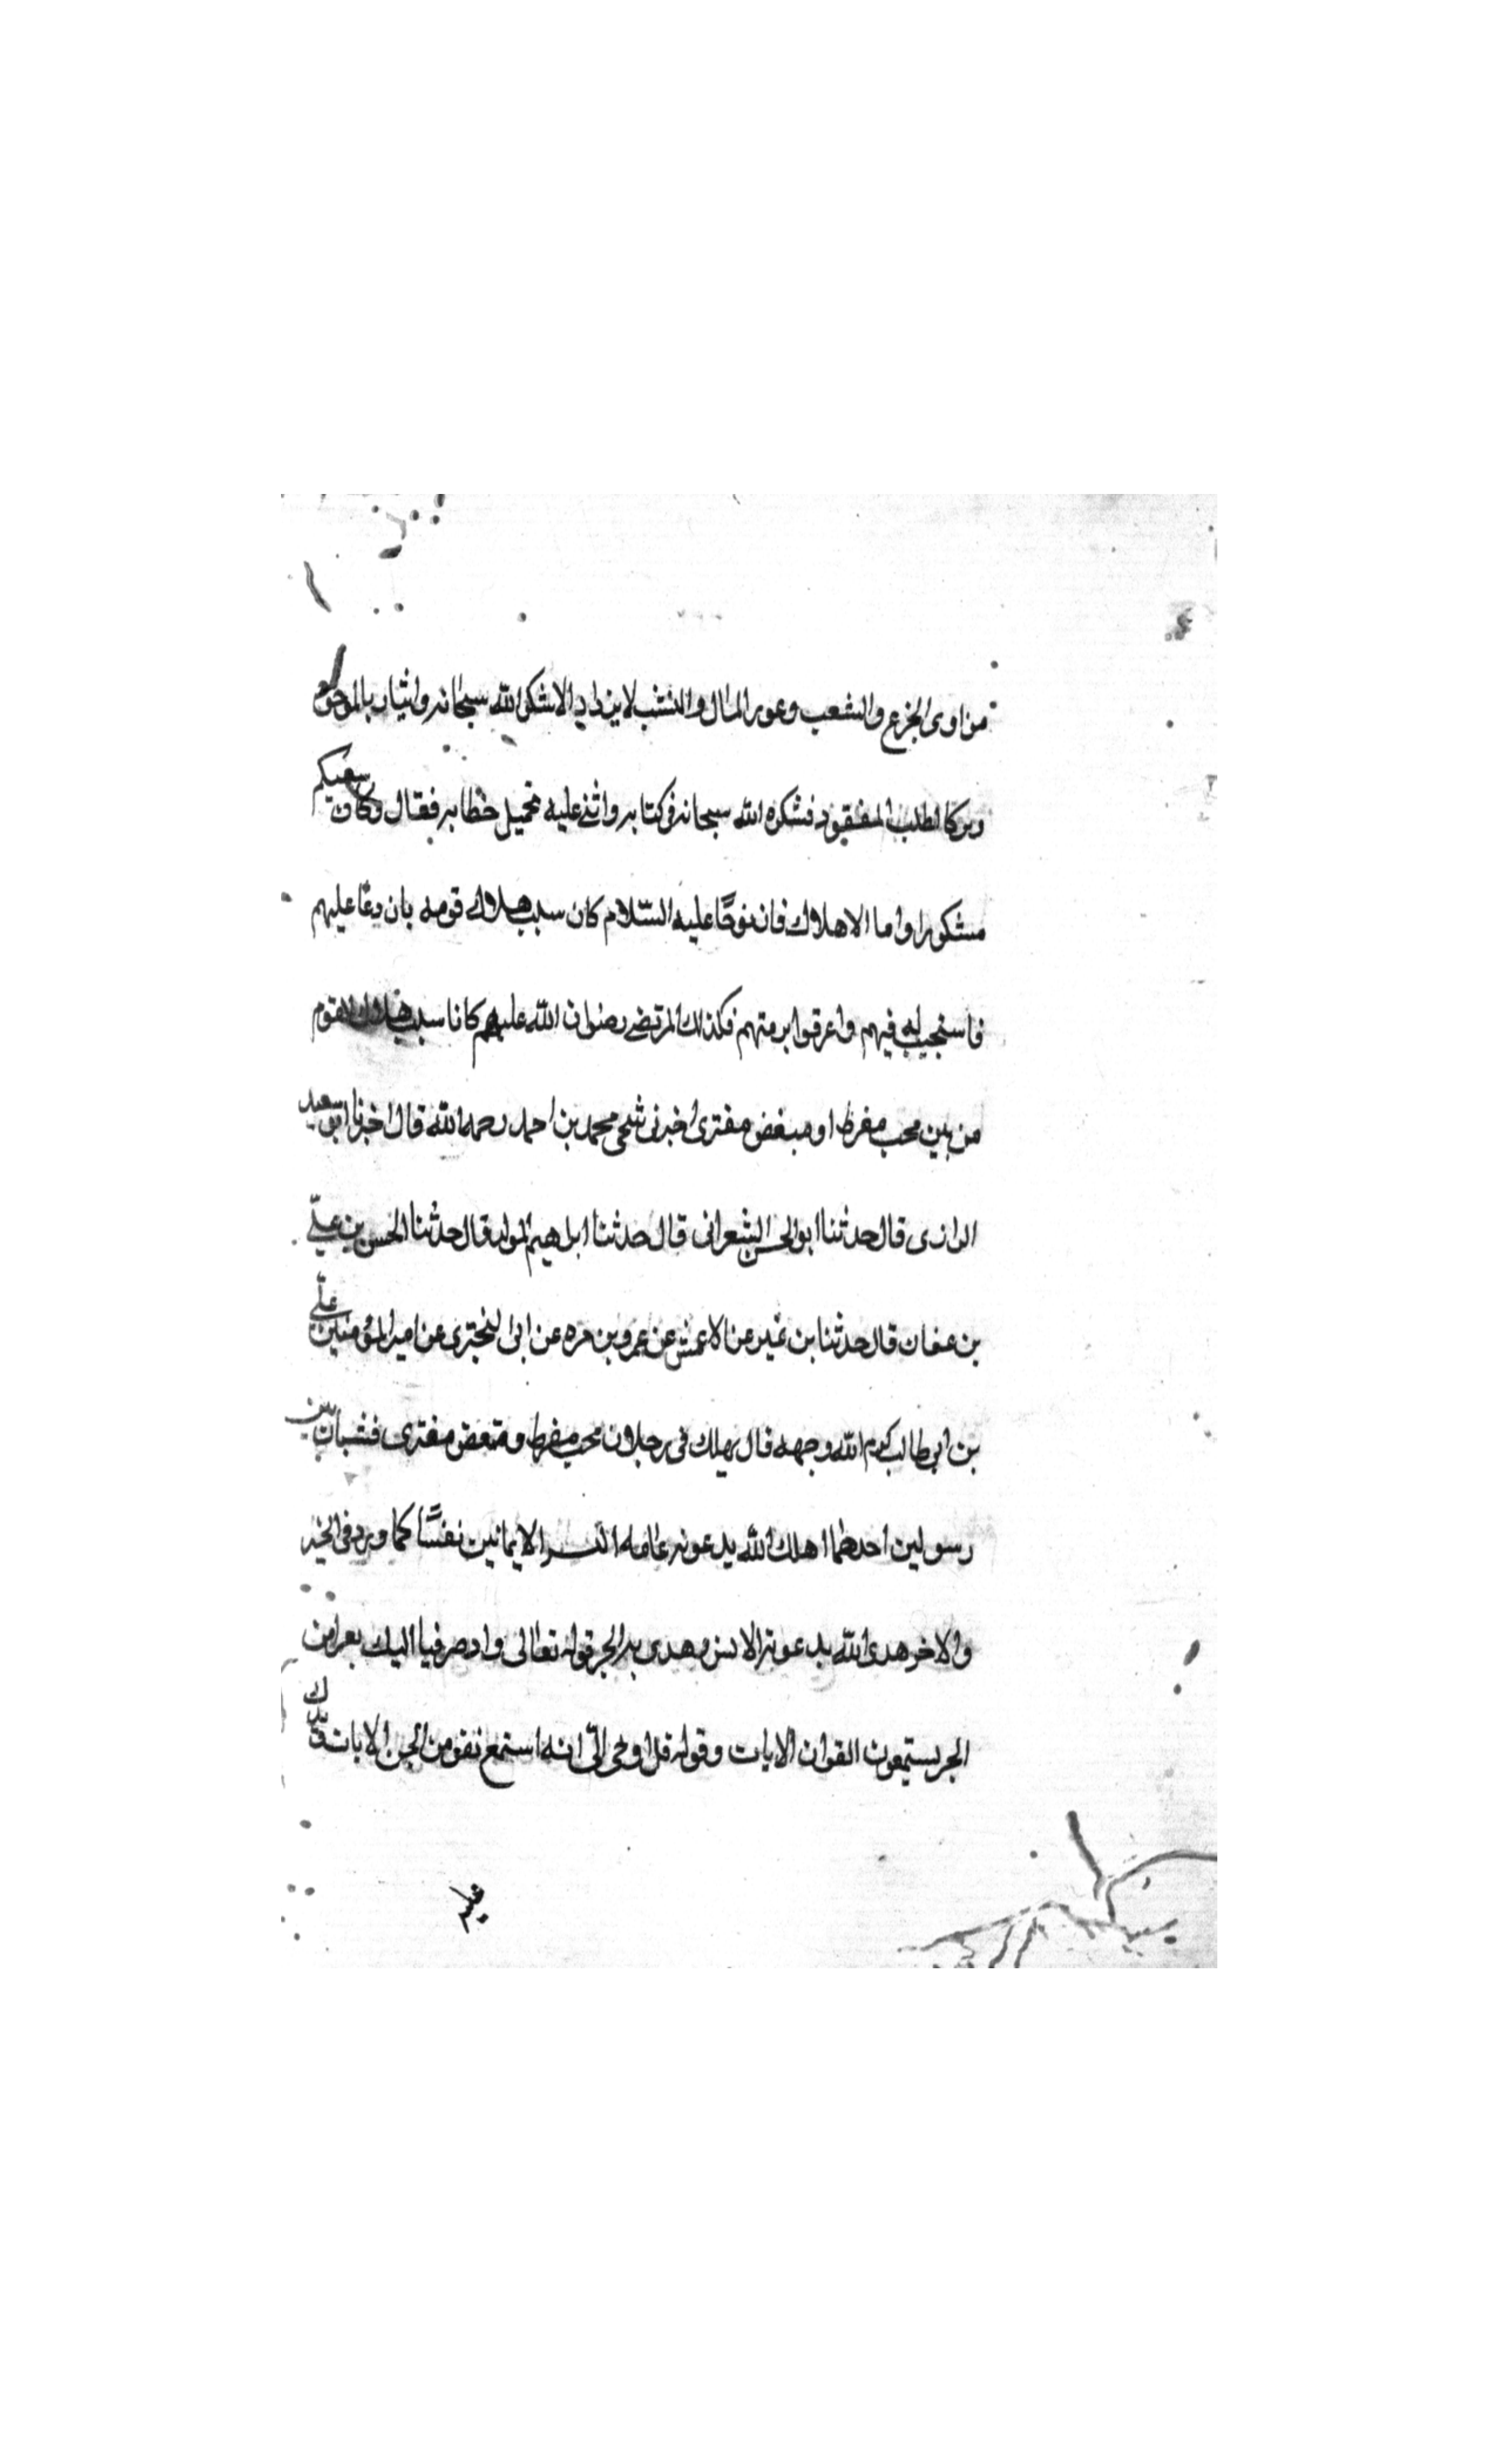 من اوى الجزع والشعب وعور المال والنشب لا يزداد الا شكر الله سبحانه وايثار بالموجود
وتركا لطلب المفقود فشكره الله سبحانه فى كتابه واثنى عليه بجميل خطابه فقال وكان سعيكم
مشكورا واما الاهلاك فان نوحًا عليه السّلام كان سبب هلاك قومه بان دعا عليهم
فاستجيب له فيهم واغرقوا برمتهم فكذلك المرتضى رضوان الله عليهم كانا سبب هلاك لاقوم
من بين محب مفرط او مبغض مفترى اخبرنى شيخى محمد بن احمد رحمه الله قال اخبرنا ابو سعيد
الرازى قال حدثنا ابو الحسن الشعرانى قال حدثنا ابراهيم المولد قال حدثنا الحسن بن علىّ
بن عفان قال حدثنا بن نمير عن الاعمش عن عمرو بن مره عن ابى البختري عن امير المؤمنين علىّ
بن ابى طالب كرم الله وجهه قال يهلك فى رجلان محب مفرط ومبغض مفترى فشتان بين
رسولين احدهما اهلك الله بدعوته عامه الا ثمانين نفسًا كما ورد فى الخبر
والاخر هدى الله بدعوته الانس وهدى به الجن قوله تعالى واذ صرفنا اليك نفرا من
الجن يستمعون القران الايات وقوله قل اوحى الىّ انه استمع نفر من الجن الايات فذلك